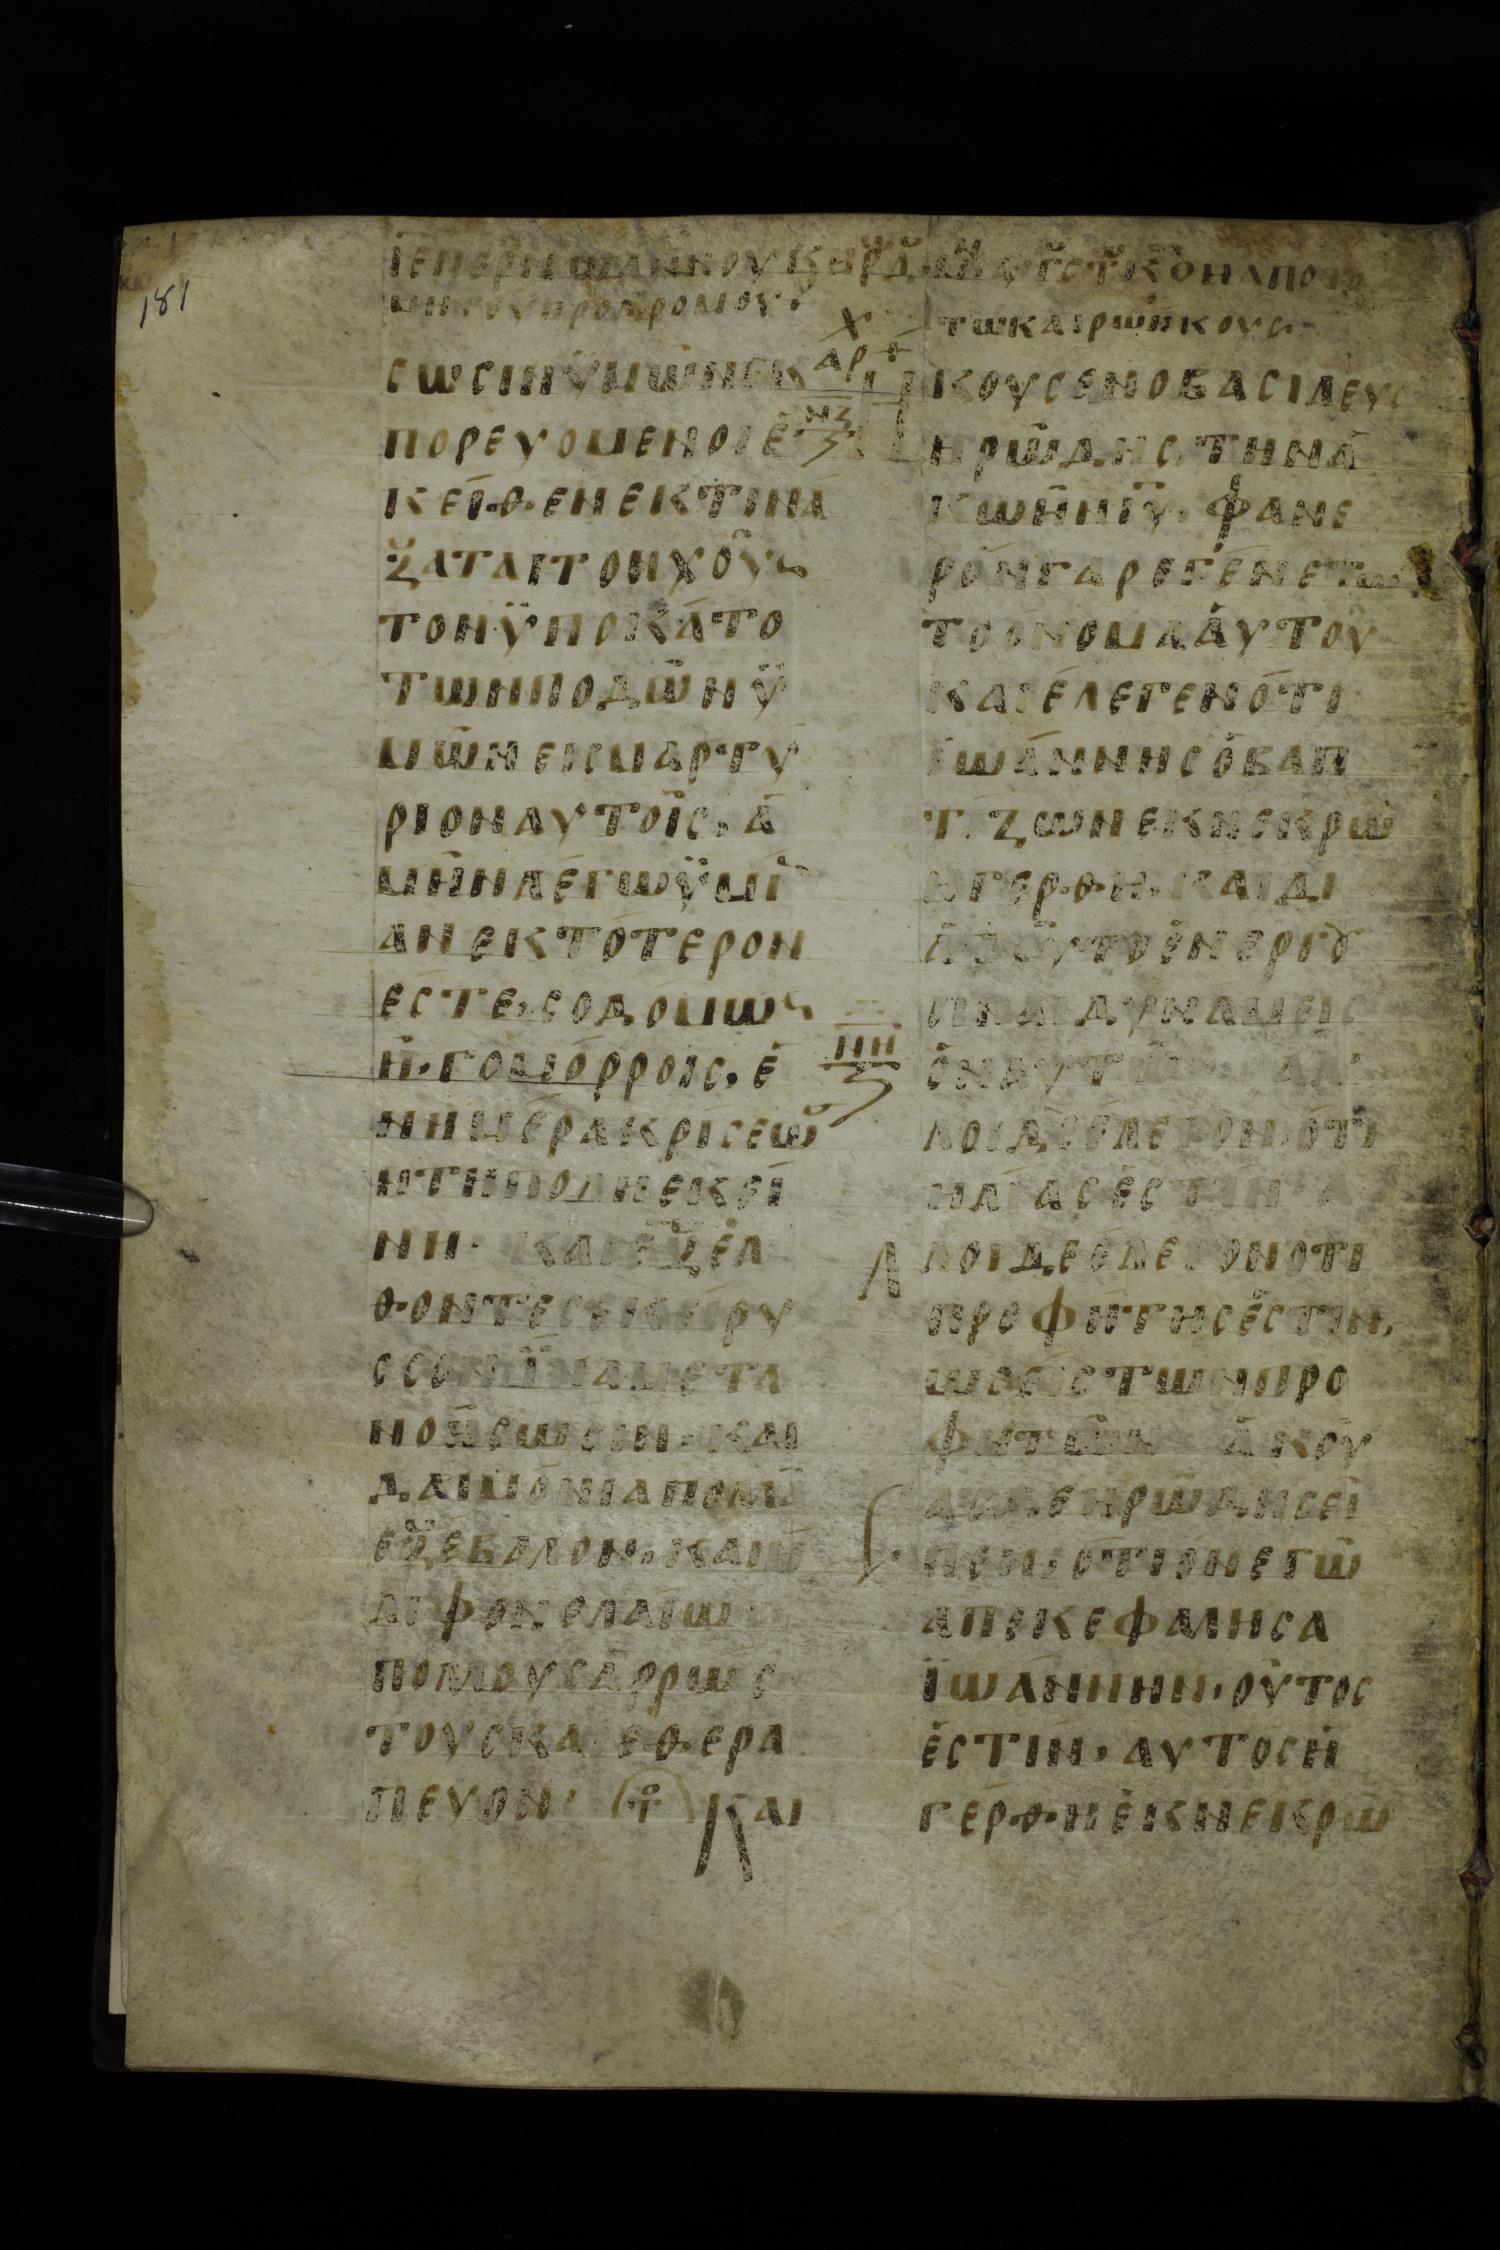 181
ΙΕ ΠΕΡΙ ΙΩΑΝΝΟΥ Κ ΗΡΩΔ
ΤΟΥ ΠΡΟΔΡΟΜΟΥ
ΣΩΣΙΝ ΫΜΩ͂Ν ΕΚ
ΠΟΡΕΥΟΜΕΝΟΙ Ε
ΚΕΙΘΕΝ ΕΚΤΙΝΑ
ΞΑΤΑΙ ΤΟΝ ΧΟΥΝ
ΤΟΝ ΫΠΟΚΑΤΟ
ΤΩΝ ΠΟΔΩΝ Ϋ
ΜΩΝ ΕΙΣ ΜΑΡΤΥ
ΡΙΟΝ ΑΥΤΟΙΣ, Α
ΜΗΝ ΛΕΓΩ ΫΜΙ
ΑΝΕΚΤΟΤΕΡΟΝ
ΕΣΤΕ, ΣΟΔΟΜΩΣ
Η· ΓΟΜΟΡΡΟΙΣ, Ε
Ν ΗΜΕΡΑ ΚΡΙΣΕΩΣ
Η ΤΗ ΠΟΛΗ ΕΚΕΙ
ΝΗ· ΚΑΙ ΕΞΕΛ
ΘΟΝΤΕΣ ΕΚΕΙΡΥ
ΣΣΟΝ ΪΝΑ ΜΕΤΑ
ΝΟΗΣΩΣΙΝ· ΚΑΙ
ΔΑΙΜΟΝΙΑ ΠΟΛΛΑ
ΕΞΕΒΑΛΟΝ, ΚΑΙ Η
ΛΙΦΟΝ ΕΛΑΙΩ
ΠΟΛΛΟΥΣ ΑΡΡΩΣ
ΤΟΥΣ ΚΑΙ ΕΘΕΡΑ
ΠΕΥΟΝ· ΚΑΙ
ΑΡ
ΝΖ
ΝΗ
ΤΩ ΚΑΙΡΩ ΗΚΟΥΣ
ΗΚΟΥΣΕΝ Ο ΒΑΣΙΛΕΥΣ
ΗΡΩΔΗΣ ΤΗΝ Α
ΚΩΗΝ ΙΥ· ΦΑΝΕ
ΡΟΝ ΓΑΡ ΕΓΕΝΕΤΩ
ΤΟ ΟΝΟΜΑ ΑΥΤΟΥ
ΚΑΙ ΕΛΕΓΕΝ ΟΤΙ
ΪΩΑΝΝΗΣ Ο ΒΑΠ
ΤΙΖΩΝ ΕΚ ΝΕΚΡΩ
ΗΓΕΡΘΗ· ΚΑΙ ΔΙ
Α ΤΟΥΤΟ ΕΝΕΡΓΟΥ
ΣΙΝ ΑΙ ΔΥΝΑΜΕΙΣ
ΕΝ ΑΥΤΩ ΑΛ
ΛΟΙ ΔΕ ΕΛΕΓΟΝ, ΟΤΙ
ΗΛΙΑΣ ΕΣΤΙΝ Α
ΛΟΙ ΔΕ ΕΛΕΓΟΝ ΟΤΙ
ΠΡΟΦΗΤΗΣ ΕΣΤΙΝ,
ΩΣ ΕΙΣ ΤΩΝ ΠΡΟ
ΦΗΤΩΝ ΑΚΟΥ
ΣΑΣ ΔΕ ΗΡΩΔΗΣ ΕΙ
ΠΕΝ, ΟΤΙ ΟΝ ΕΓΩ
ΑΠΕΚΕΦΑΛΗΣΑ
ΪΩΑΝΝΗΝ, ΟΥΤΟΣ
ΕΣΤΙΝ, ΑΥΤΟΣ Η
ΓΕΡΘΗ ΕΚ ΝΕΚΡΩ